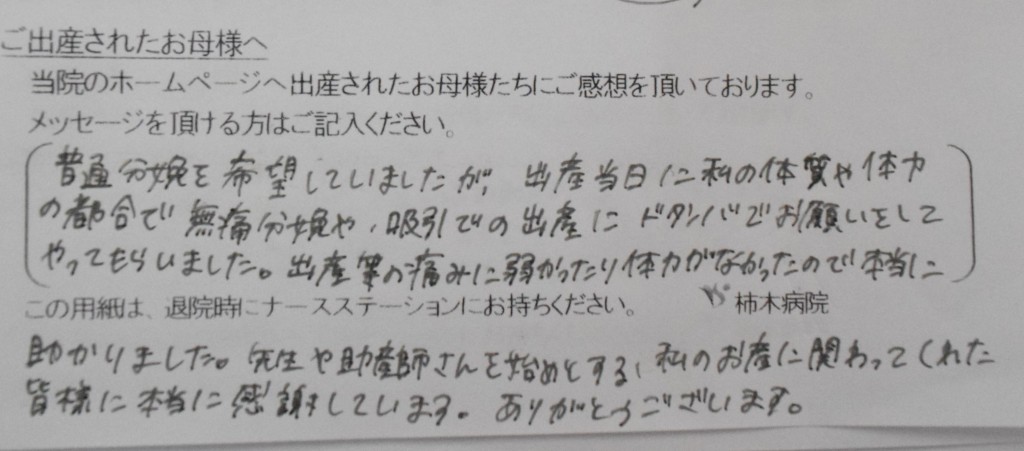 ご出産されたお母様へ
当院のホームページへ出産されたお母様たちにご感想を頂いております。
メッセージを頂ける方はご記入ください。
普通分娩を希望していましたが、出産当日に私の体質や体力
の都合で無痛分娩や、吸引での出産にドタンバでお願いをして
やってもらいました。出産等の痛みに弱かったり体力がなかったので本当に
この用紙は、退院時にナースステーションにお持ちください。 柿木病院
助かりました。先生や助産師さんを始めとする、私のお産に関わってくれた
皆様に本当に感謝をしています。ありがとうございます。